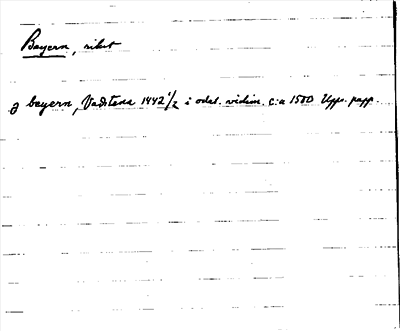 Bayern, riket
å beyern, Vadstena 1442 1/2 i odat. vidim. c:a 1500 Upps. papp.